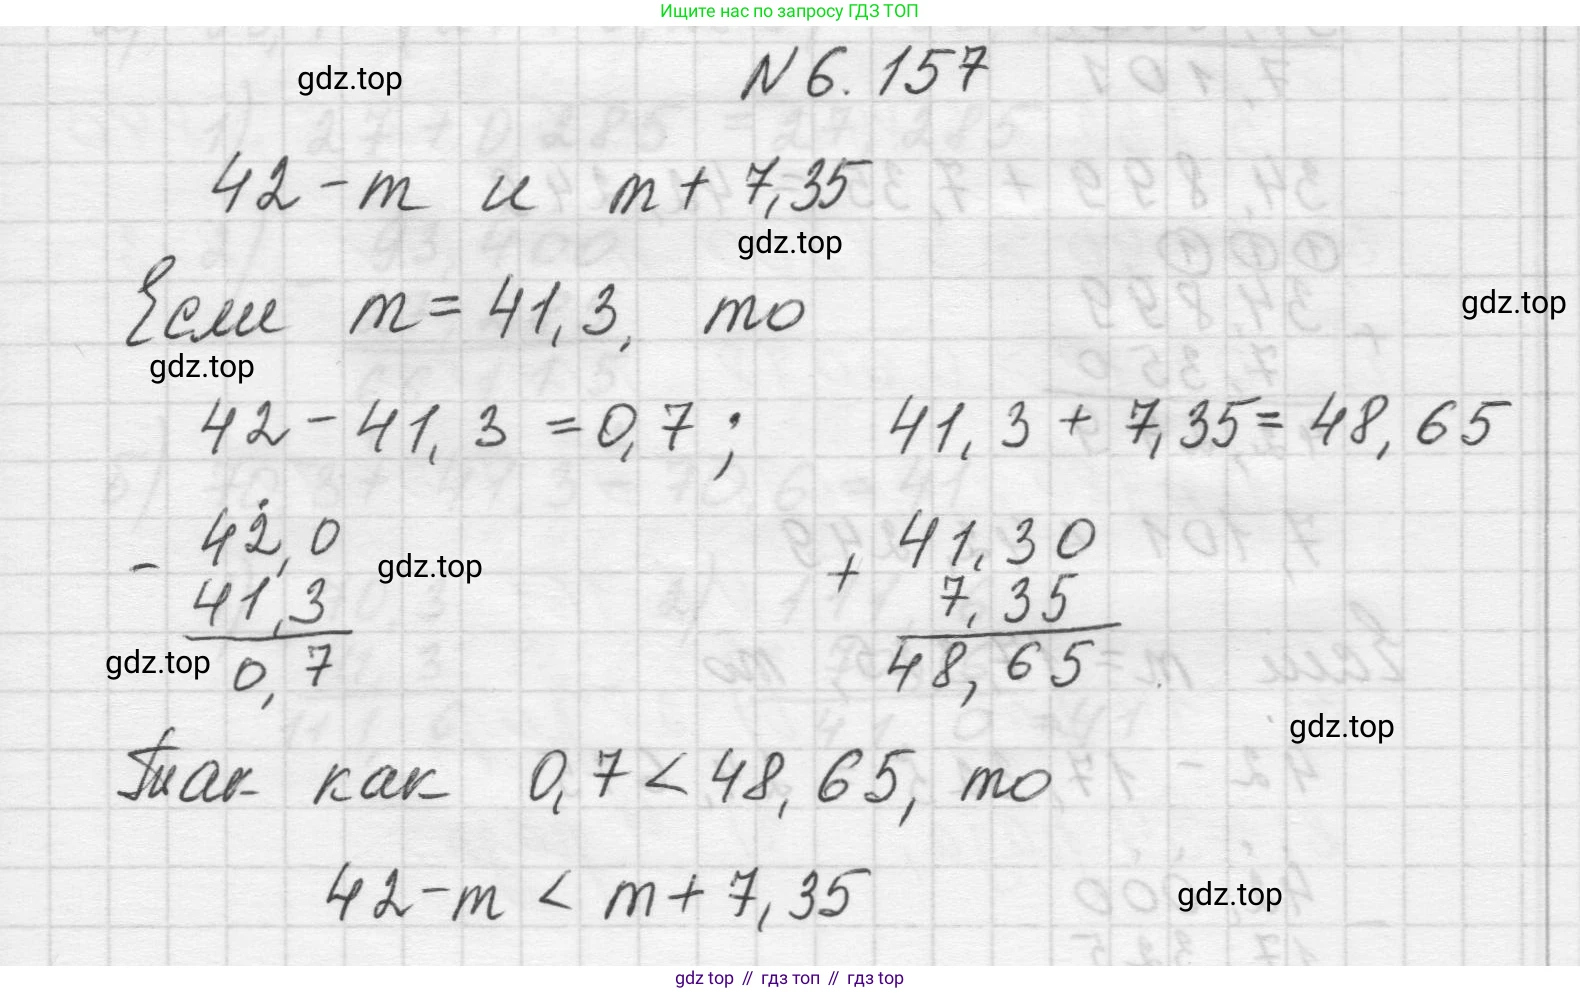 Ищите нас по запросу ГДЗ ТОП
N 6.157
gdz.top
42 - m и m + 7,35
gdz.top
Если m = 41,3, то
gdz.top
gdz.top
42 - 41,3 = 0,7; 41,3 + 7,35 = 48,65
- 42,0
41,3
0,7
gdz.top
+ 41,30
7,35
48,65
gdz.top
gdz.top
Так как 0,7 < 48,65, то
42 - m < m + 7,35
gdz.top
gdz top // гдз топ // гдз top